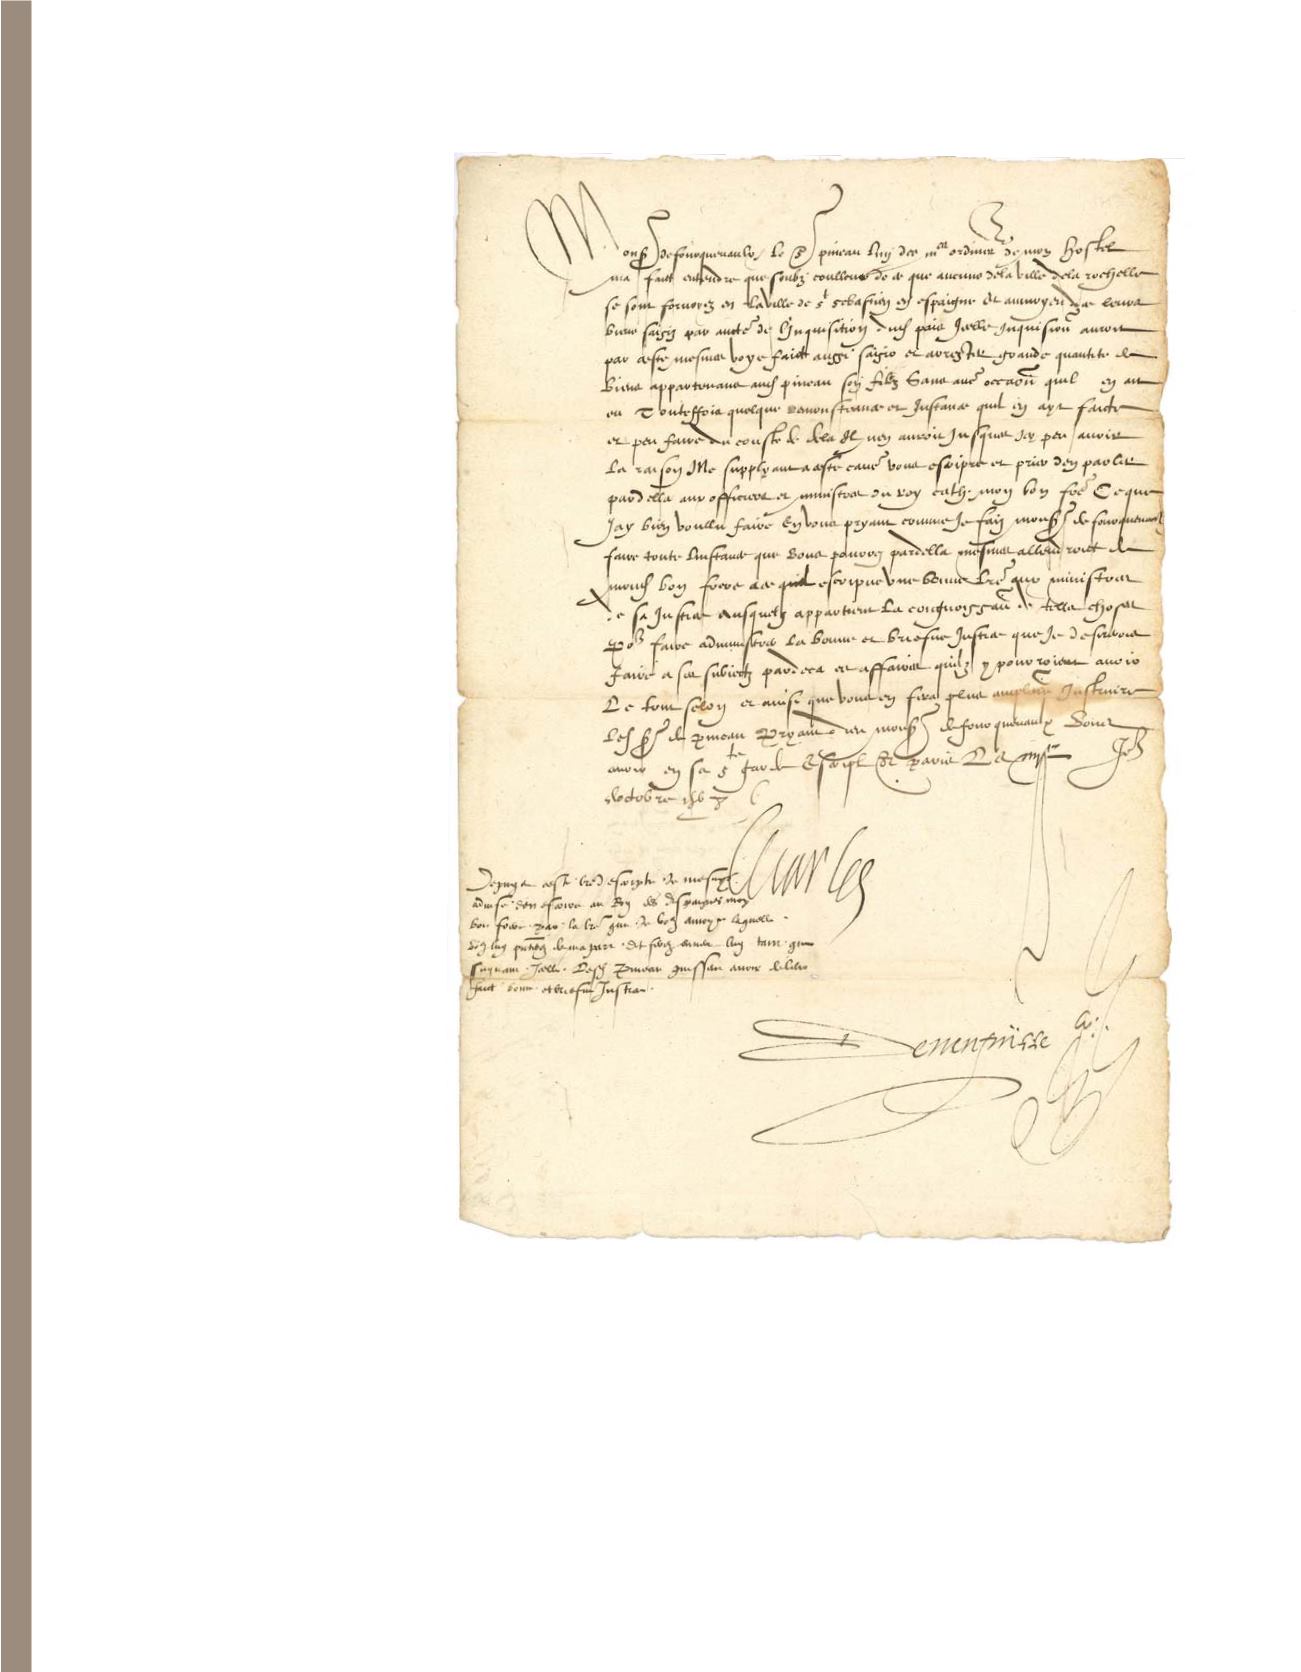 Mons^r de fourquevaulx, Le s^r pineau luy des m^es ordin^res de mon hostel
ma faict entendre que soubz coulleur de ce que aucuns de la ville de la rochelle
se sont en la ville de s^t sebastien en espaigne et leurs
biens saisiz par auct^e de l'Inquisition dud^ pais Icelle Inquision auroit
par ceste mesmes voye faict aussi saisir et arrester grande quantite de
biens appartenans aud^ pineau son filz sans auc^e occaõn quil en ait
eu Touteffois quelque remonstrance et Instance quil en ayt faicte
et peu faire du coste de dela Il nen auroit Jusques Icy peu avoir
La raison Me supplyant a ceste cause vous escripre et prier den parler
pardella aux officiers et ministres du roy cath. mon bon fre^ Ce que
Jay bien voullu faire En vous pryant comme Je fais mons^r de fourquevaulx
faire toute linstance que vous pourrez pardella mesmes allendroict de
mond^ bon frere a ce quil escripve une bonne lre^ aux ministres
de sa Justice ausquelz appartient La congnoissan^ de telle choses
Po^r faire administrer La bonne et briefve Justice que Je desirerois
faire a ses subiectz pardeca es affaires quilz y pourroient avoir
Le tout selon et ainsi que vous en fera plus amplem^ Instruire
Led^ s^r de pineau Pryant dieu mons^r de fourquevaulx Vous
avoir en sa s^te garde Escript A paris Le Jo^r
doctobre
Charles
Depuys ceste lre^ escripte Je me suys
advise den escrire au Roy des Espaignes mon
bon frere par la lre^ que Je vous envoye laquelle
vous luy pnterez de ma part Et ferez envers luy tant que
suyvant Icelle Led^ Pineau puisse avoir
bonne et briefve Justice.